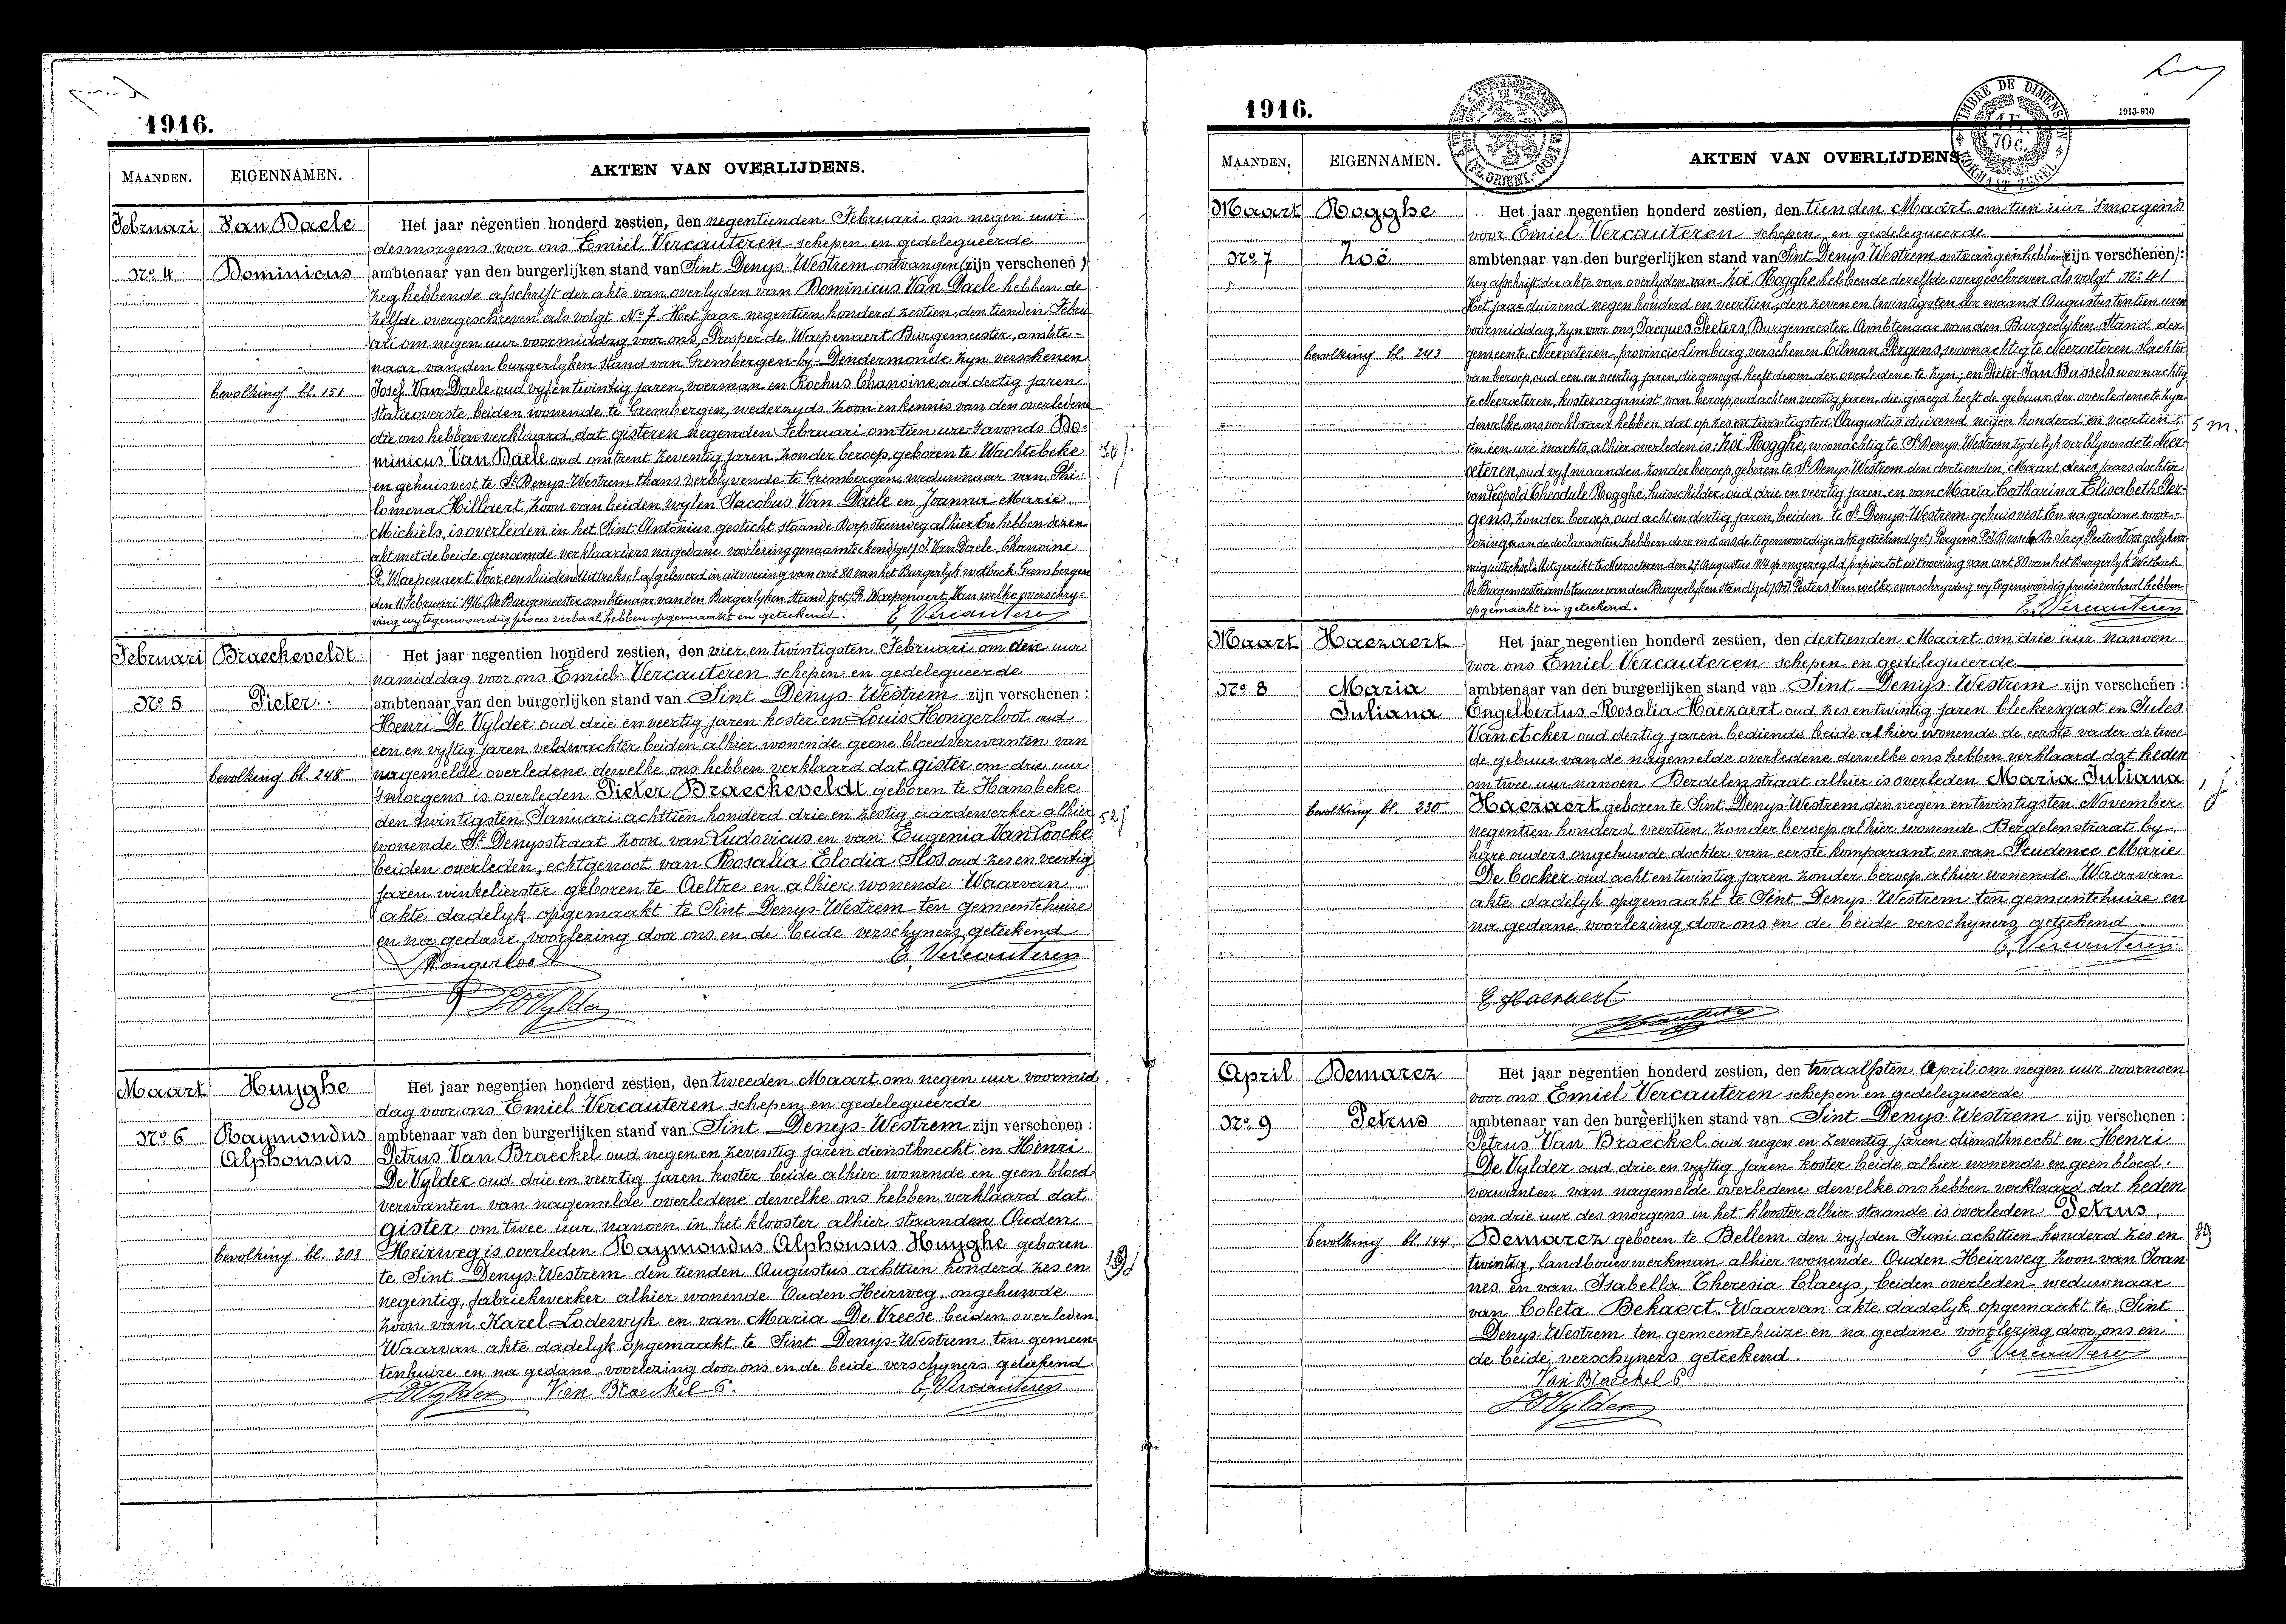 1916.
MAANDEN. EIGENNAMEN. AKTEN VAN OVERLIJDENS.
Februari Van Daele Het jaar negentien honderd zestien, den negentienden Februari om negen uur
des morgens voor ons Emiel Vercauteren schepen en gedelegueerde
No 4 Dominicus ambtenaar van den burgerlijken stand van Sint Denys-Westrem ontvangen (zijn verschenen)
zeg hebbende afschrift der akte van overlyden van Dominicus Van Daele hebben de
zelfde overgeschreven als volgt No 7. Het jaar negentien honderd zestien, den tienden Febru
ari om negen uur voormiddag voor ons, Prosper de Waepenaert Burgemeester, ambte-
naar van den burgerlyken stand van Grembergen-by-Dendermonde zyn verschenen
bevolking bl. 151 Josef Van Daele oud vyf en twintig jaren, voerman en Rochus Chanoine oud dertig jaren
statieoverste, beiden wonende te Grembergen, wederzyds zoon en kennis van den overledene
die ons hebben verklaard dat gisteren negenden Februari om tien ure 's avonds Do-
minicus Van Daele oud omtrent zeventig jaren, zonder beroep, geboren te Wachtebeke 70j.
en gehuisvest te St Denys-Westrem thans verblyvende te Grembergen, weduwnaar van Phi-
lomena Hillaert, zoon van beiden wylen Jacobus Van Daele en Joanna-Marie
Michiels, is overleden in het Sint Antonius gesticht staande Dorpsteenweg alhier En hebben dezen
akt met de beide genoemde verklaarders nagedane voorlezing genaamteekend (get) J. Van Daele, Chanoine
Pr. Waepenaert. Voor eensluidend Uittreksel afgeleverd in uitvoering van art 80 van het Burgerlyk wetboek Grembergen
den 11 Februari 1916 De Burgemeester ambtenaar van den Burgerlyken Stand (get) P. Waepenaert, Van welke overschry-
ving wy tegenwoordig proces verbaal hebben opgemaakt en geteekend. E. Vercauteren
Februari Braeckeveldt Het jaar negentien honderd zestien, den vier en twintigsten Februari om drie uur
namiddag voor ons Emiel Vercauteren schepen en gedelegueerde
No 5 Pieter ambtenaar van den burgerlijken stand van Sint Denys-Westrem zijn verschenen :
Henri De Vylder oud drie en veertig jaren koster en Louis Hongerloot oud
een en vyftig jaren veldwachter beiden alhier wonende geene bloedverwanten van
bevolking bl. 248 nagemelde overledene dewelke ons hebben verklaard dat gister om drie uur
's morgens is overleden Pieter Braeckeveldt geboren te Hansbeke
den twintigsten Januari achttien honderd drie en zestig aardewerker alhier 52j
wonende St Denysstraat zoon van Ludovicus en van Eugenia Van Loocke
beiden overleden, echtgenoot van Rosalia Elodia Slos oud zes en veertig
jaren winkelierster geboren te Aeltre en alhier wonende Waarvan
akte dadelyk opgemaakt te Sint Denys-Westrem ten gemeentehuize
en na gedane voorlezing door ons en de beide verschyners geteekend
Hongerloot E. Vercauteren
H D Vylder
Maart Huyghe Het jaar negentien honderd zestien, den tweeden Maart om negen uur voormid
dag voor ons Emiel Vercauteren schepen en gedelegueerde
No 6 Raymondus ambtenaar van den burgerlijken stand van Sint Denys-Westrem zijn verschenen :
Alphonsus Petrus Van Braeckel oud negen en zeventig jaren dienstknecht en Henri
De Vylder oud drie en veertig jaren koster beide alhier wonende en geen bloed
verwanten van nagemelde overledene dewelke ons hebben verklaard dat
gister om twee uur nanoen in het klooster alhier staanden Ouden
bevolking bl. 203 Heirweg is overleden Raymondus Alphonsus Huyghe geboren
te Sint Denys-Westrem den tienden Augustus achttien honderd zes en 19j
negentig, fabriekwerker alhier wonende Ouden Heirweg, ongehuwde
zoon van Karel Lodewyk en van Maria De Vreese beiden overleden
Waarvan akte dadelyk opgemaakt te Sint Denys-Westrem ten gemeen
tenhuize en na gedane voorlezing door ons en de beide verschyners geteekend.
H D Vylder Van Braeckel P. E. Vercauteren
1916. 1913-910
TIMBRE DE DIMENSION
70 C.
FORMAAT ZEGEL
FL. ORIENT.-OOST VL.
MAANDEN. EIGENNAMEN. AKTEN VAN OVERLIJDENS
Maart Rogghe Het jaar negentien honderd zestien, den tienden Maart om tien uur 's morgens
voor Emiel Vercauteren schepen en gedelegueerde
No 7 Zoë ambtenaar van den burgerlijken stand van Sint Denys-Westrem ontvangen hebbende (zijn verschenen) :
zeg afschrift der akte van overlyden van Zoë Rogghe hebbende dezelfde overgeschreven als volgt No 41
Het jaar duizend negen honderd en veertien, den zeven en twintigsten der maand Augustus ten tien uren
voormiddag, zyn voor ons, Jacques Peeters, Burgemeester Ambtenaar van den Burgerlyken Stand der
bevolking bl. 243 gemeente Neeroeteren, provincie Limburg, verschenen Tilman Pergens, woonachtig te Neeroeteren slachter
van beroep, oud een en veertig jaren, die gezegd heeft de oom der overledene te zyn; en Pieter-Jan Bussels woonachtig
te Neeroeteren, koster organist van beroep, oud acht en veertig jaren, die gezegd heeft de gebuur der overledene te zyn
dewelke ons verklaard hebben dat op zes en twintigsten Augustus duizend negen honderd en veertien, 5 m.
ten een ure 's nachts, alhier overleden is: Zoë Rogghe, woonachtig te St Denys-Westrem, tydelyk verblyvende te Neer-
oeteren, oud vyf maanden zonder beroep, geboren te St Denys-Westrem den dertienden Maart dezes jaars dochter
van Leopold Theodule Rogghe, huisschilder, oud drie en veertig jaren, en van Maria Catharina Elisabeth Per-
gens, zonder beroep, oud acht en dertig jaren, beiden te St Denys-Westrem gehuisvest En na gedane voor-
lezing aan de declaranten, hebben deze met ons de tegenwoordige akte geteekend (get) Pergens P.J. Bussels Br. Jacq Peeters Voor gelykvor
mig uittreksel: Uitgereikt te Neeroeteren den 27 Augustus 1914 op ongezegeld papier tot uitvoering van art 80 van het Burgerlyk Wetboek
De Burgemeester ambtenaar van den Burgerlyken Stand (get) Peeters Van welke overschryving wy tegenwoordig proces verbaal hebben
opgemaakt en geteekend. E. Vercauteren
Maart Haezaert Het jaar negentien honderd zestien, den dertienden Maart om drie uur nanoen
voor ons Emiel Vercauteren schepen en gedelegueerde
No 8 Maria ambtenaar van den burgerlijken stand van Sint Denys-Westrem zijn verschenen :
Juliana Engelbertus Rosalia Haezaert oud zes en twintig jaren bleekersgast en Jules
Van Acker oud dertig jaren bediende beide alhier wonende de eerste vader de twee
de gebuur van de nagemelde overledene dewelke ons hebben verklaard dat heden
om twee uur nanoen Berdelenstraat alhier is overleden Maria Juliana 1 j.
bevolking bl. 230 Haezaert geboren te Sint Denys-Westrem den negen en twintigsten November
negentien honderd veertien zonder beroep alhier wonende Berdelenstraat by
hare ouders ongehuwde dochter van eerste komparant en van Prudence Marie
De Cocker oud acht en twintig jaren zonder beroep alhier wonende Waarvan
akte dadelyk opgemaakt te Sint Denys-Westrem ten gemeentehuize en
na gedane voorlezing door ons en de beide verschyners geteekend.
E. Vercauteren
E Haezaert
April Demarez Het jaar negentien honderd zestien, den twaalfsten April om negen uur voornoen
voor ons Emiel Vercauteren schepen en gedelegueerde
No 9 Petrus ambtenaar van den burgerlijken stand van Sint Denys-Westrem zijn verschenen :
Petrus Van Braeckel oud negen en zeventig jaren dienstknecht en Henri
De Vylder oud drie en vyftig jaren koster beide alhier wonende en geen bloed-
verwanten van nagemelde overledene dewelke ons hebben verklaard dat heden
om drie uur des morgens in het klooster alhier staande is overleden Petrus
bevolking bl. 144 Demarez geboren te Bellem den vyfden Juni achttien honderd zes en 89
twintig, landbouwwerkman alhier wonende Ouden Heirweg zoon van Joan
nes en van Isabella Theresia Claeys, beiden overleden weduwnaar
van Coleta Bekaert. Waarvan akte dadelyk opgemaakt te Sint
Denys-Westrem ten gemeentehuize en na gedane voorlezing door ons en
de beide verschyners geteekend. E Vercauteren
Van Braeckel P
H D Vylder